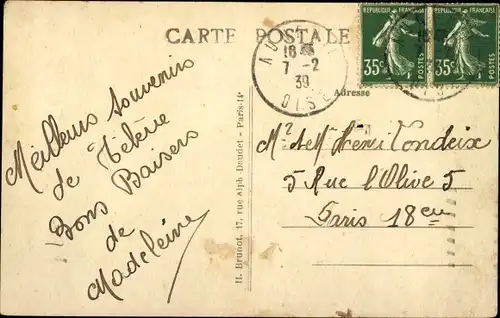 CARTE POSTALE
REPUBLIQUE FRANÇAISE
35c
POSTES
REPUBLIQUE FRANÇAISE
35c
POSTES
18
7-2
39
OISE
Adresse
Meilleurs souvenirs
de
Bons Baisers
de
Madeleine
H. Brunot, 17, rue Alph-Daudet - Paris-14e
Mr et Mme Henri Tondeix
5 Rue l'Olive 5
Paris 18eme